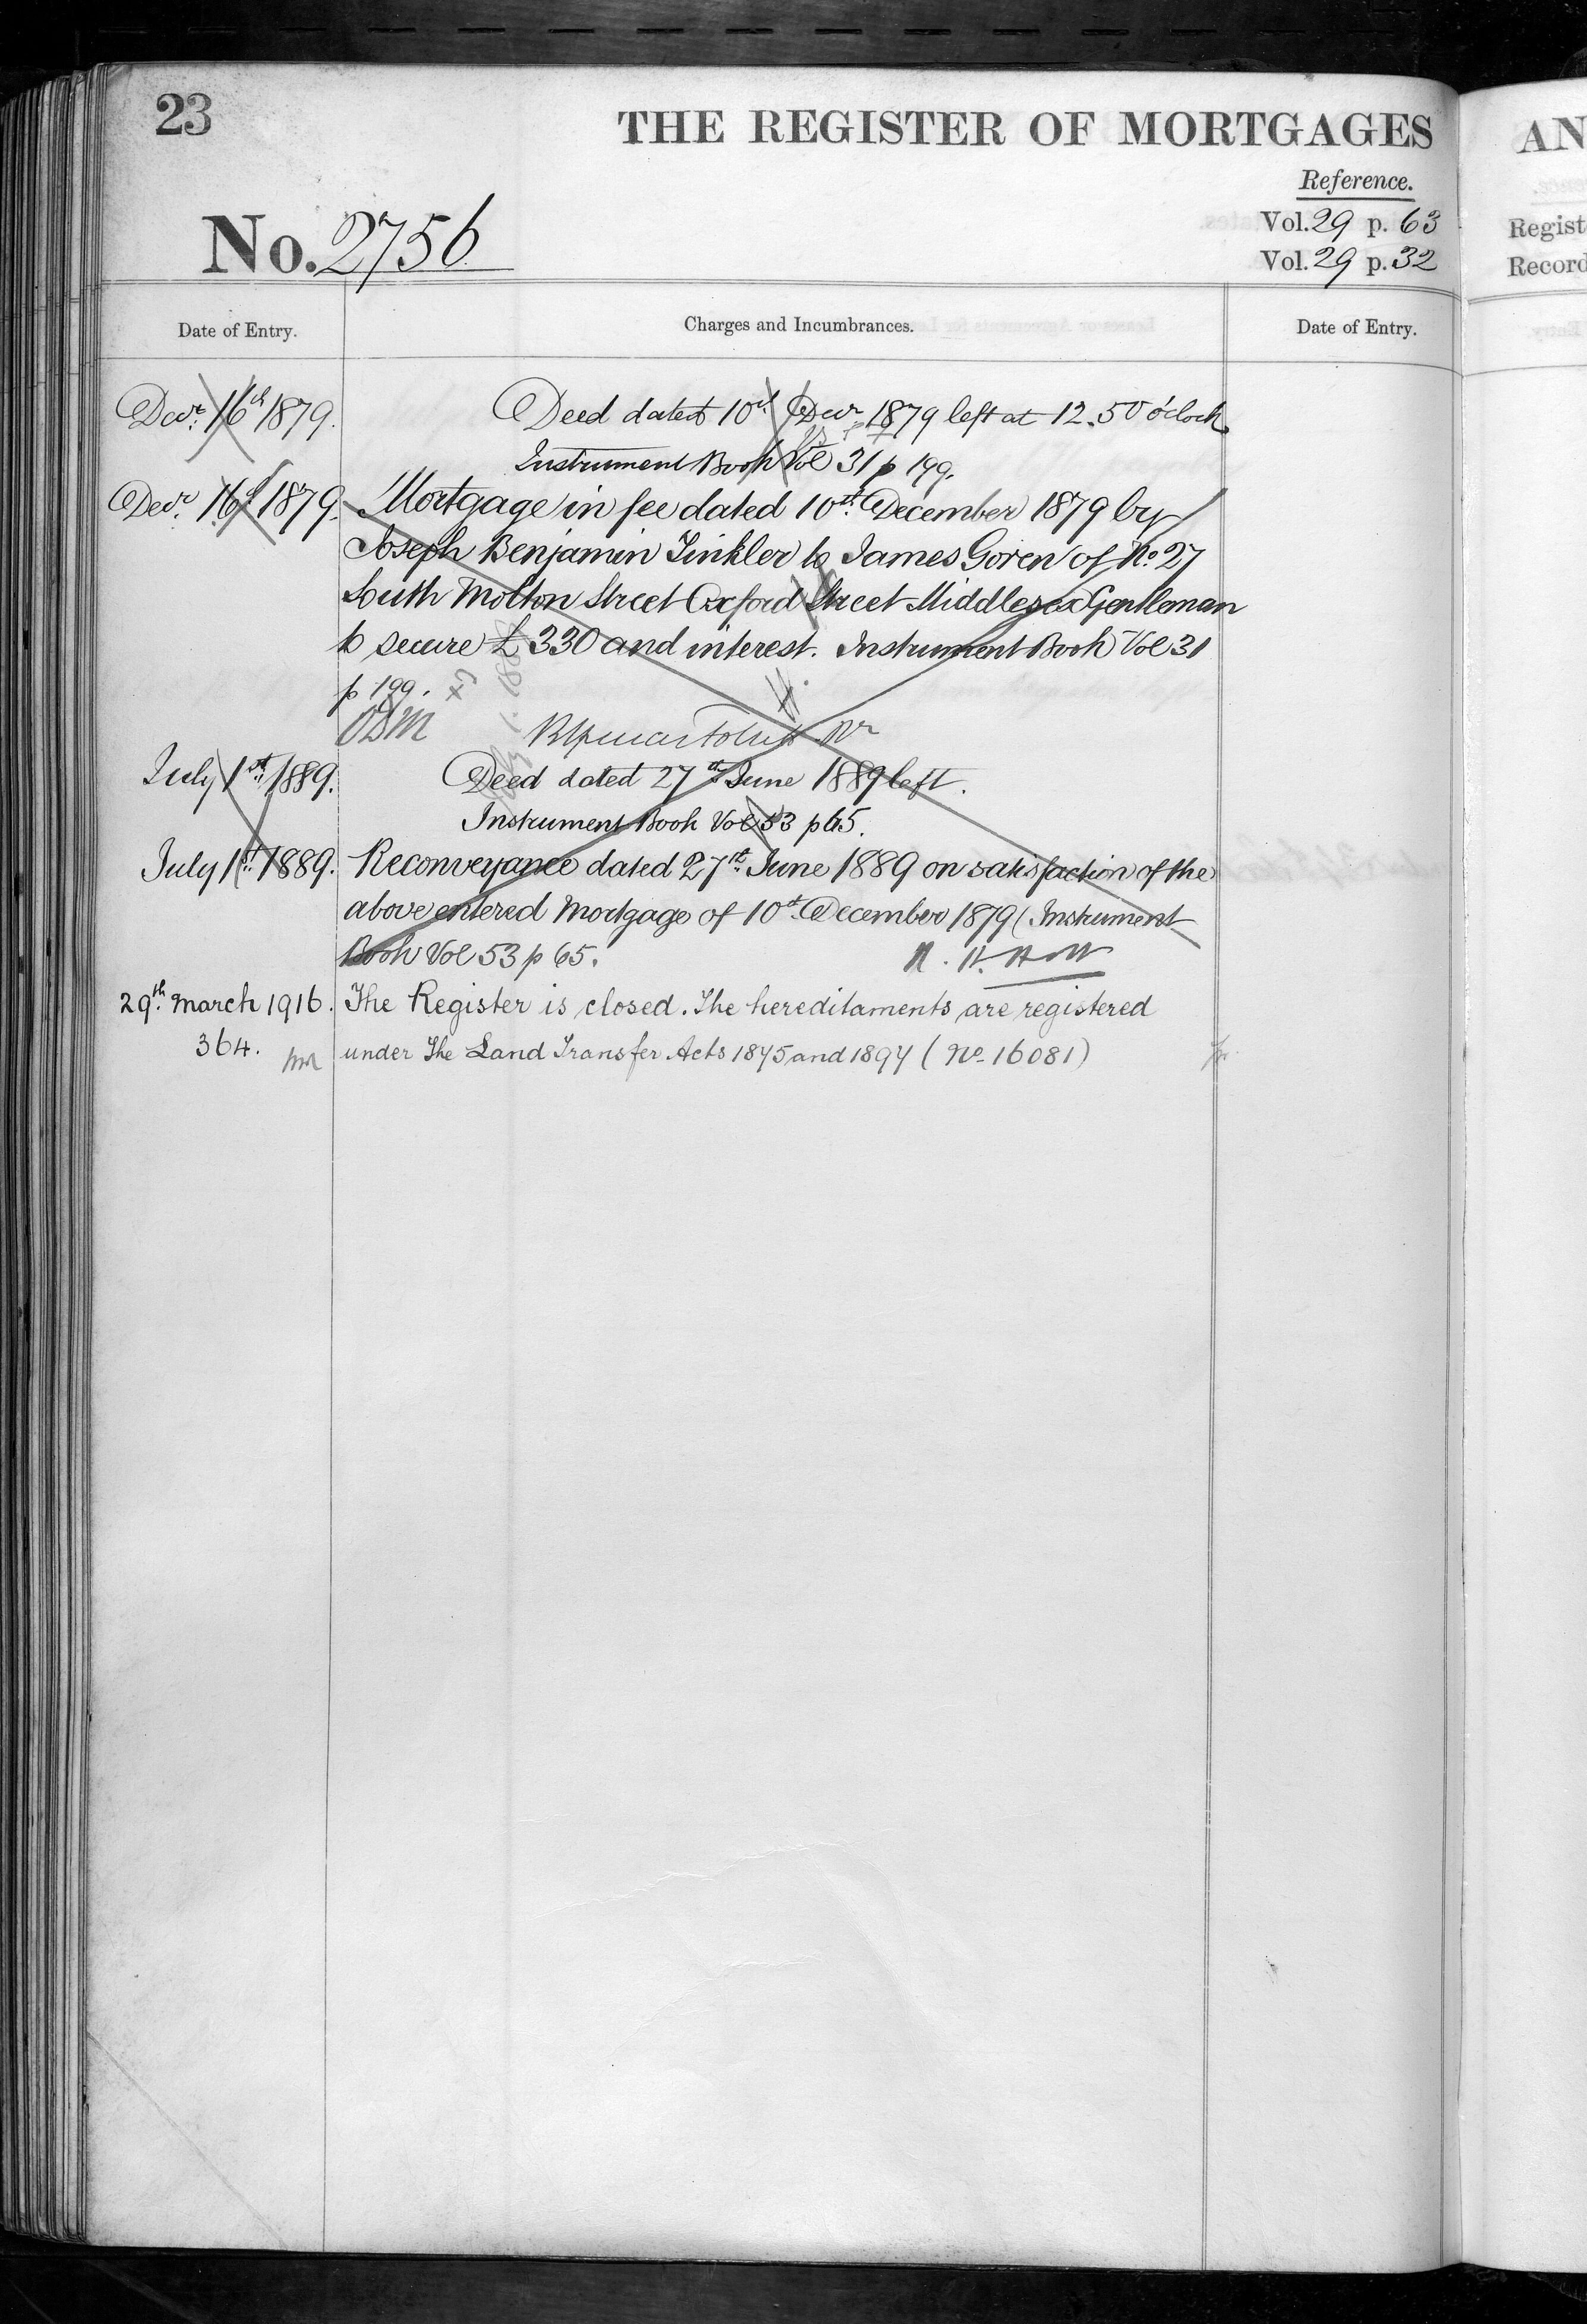 23
THE REGISTER OF MORTGAGES
Reference.
No. 2756
Vol. 29 p. 63
Vol. 29 p. 32
Date of Entry.
Charges and Incumbrances.
Date of Entry.
Decr. 16th 1879.
Deed dated 10th Decr 1879 left at 12.50 o'clock.
Instrument Book Vol 31 p 199.
Decr. 16th 1879.
Mortgage in fee dated 10th December 1879 by
Joseph Benjamin Tinkler to James Goren of No. 27
South Molton Street Oxford Street Middlesex Gentleman
to secure £330 and interest. Instrument Book Vol 31
p 199.
July 1st 1889.
Deed dated 27th June 1889 left.
Instrument Book Vol 53 p 65.
July 1st 1889.
Reconveyance dated 27th June 1889 on satisfaction of the
above entered Mortgage of 10th December 1879 (Instrument
Book Vol 53 p 65.
29th March 1916.
The Register is closed. The hereditaments are registered
364.
under The Land Transfer Acts 1875 and 1897 (No 16081)
AN
Regist
Record